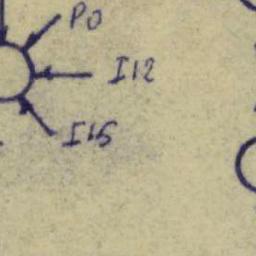 P0
I12
I15